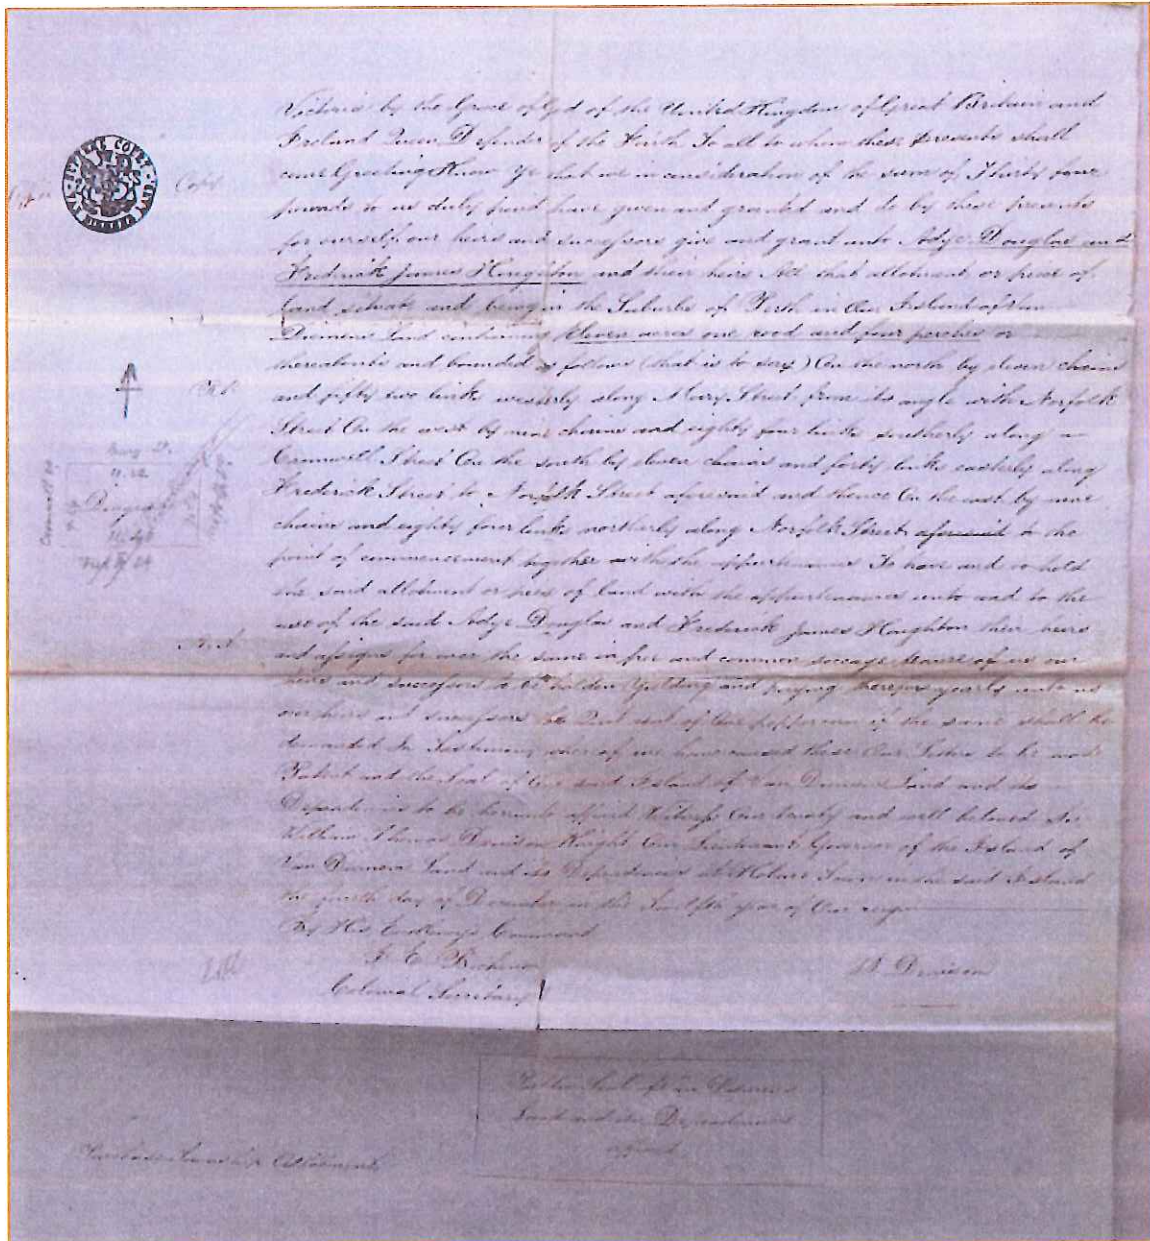 Victoria by the Grace of God of the United Kingdom of Great Britain and
Ireland Queen Defender of the Faith To all to whom these presents shall
come Greeting Know Ye that we in consideration of the sum of Thirty four
pounds to us duly paid have given and granted and do by these presents
for ourself our heirs and successors give and grant unto Adye Douglas and
Frederick James Houghton and their heirs All that allotment or piece of
land situate and being in the Suburbs of Perth in Our Island of Van
Diemens Land containing eleven acres one rood and four perches or
thereabouts and bounded as follows (that is to say) On the north by eleven chains
and fifty two links westerly along Mary Street from its angle with Norfolk
Street On the west by nine chains and eighty four links southerly along
Cromwell Street On the south by eleven chains and forty links easterly along
Frederick Street to Norfolk Street aforesaid and thence On the east by nine
chains and eighty four links northerly along Norfolk Street aforesaid to the
point of commencement together with the appurtenances To have and to hold
the said allotment or piece of land with the appurtenances unto and to the
use of the said Adye Douglas and Frederick James Houghton their heirs
and assigns for ever the same in free and common soccage tenure of us our
heirs and successors to be holden Yielding and paying therefor yearly unto us
our heirs and successors the Quit rent of One peppercorn if the same shall be
demanded In Testimony whereof we have caused these Our Letters to be made
Patent and the Seal of Our said Island of Van Diemens Land and its
Dependencies to be hereunto affixed Witness Our trusty and well beloved Sir
William Thomas Denison Knight Our Lieutenant Governor of the Island of
Van Diemens Land and its Dependencies at Hobart Town in the said Island
the fourth day of December in the twelfth year of Our reign
By His Excellency's Command
J E Bicheno
Colonial Secretary
W Denison
SUPREME COURT
Copy
Mary St.
Diagram
Land and its Dependencies
affixed
Allotment